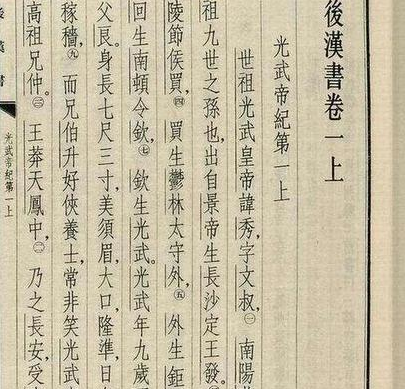 後漢書卷一上
光武帝紀第一上
世祖光武皇帝諱秀,字文叔,㊀南陽
祖九世之孫也,出自景帝生長沙定王發。
陵節侯買,㊃買生鬱林太守外,㊄外生鉅
回生南頓令欽,㊆欽生光武。光武年九歲
父良。身長七尺三寸,美須眉,大口,隆準,日
稼穡,㊈而兄伯升好俠養士,常非笑光武
高祖兄仲。㊂王莽天鳳中,㊁乃之長安,受
光武帝紀第一上